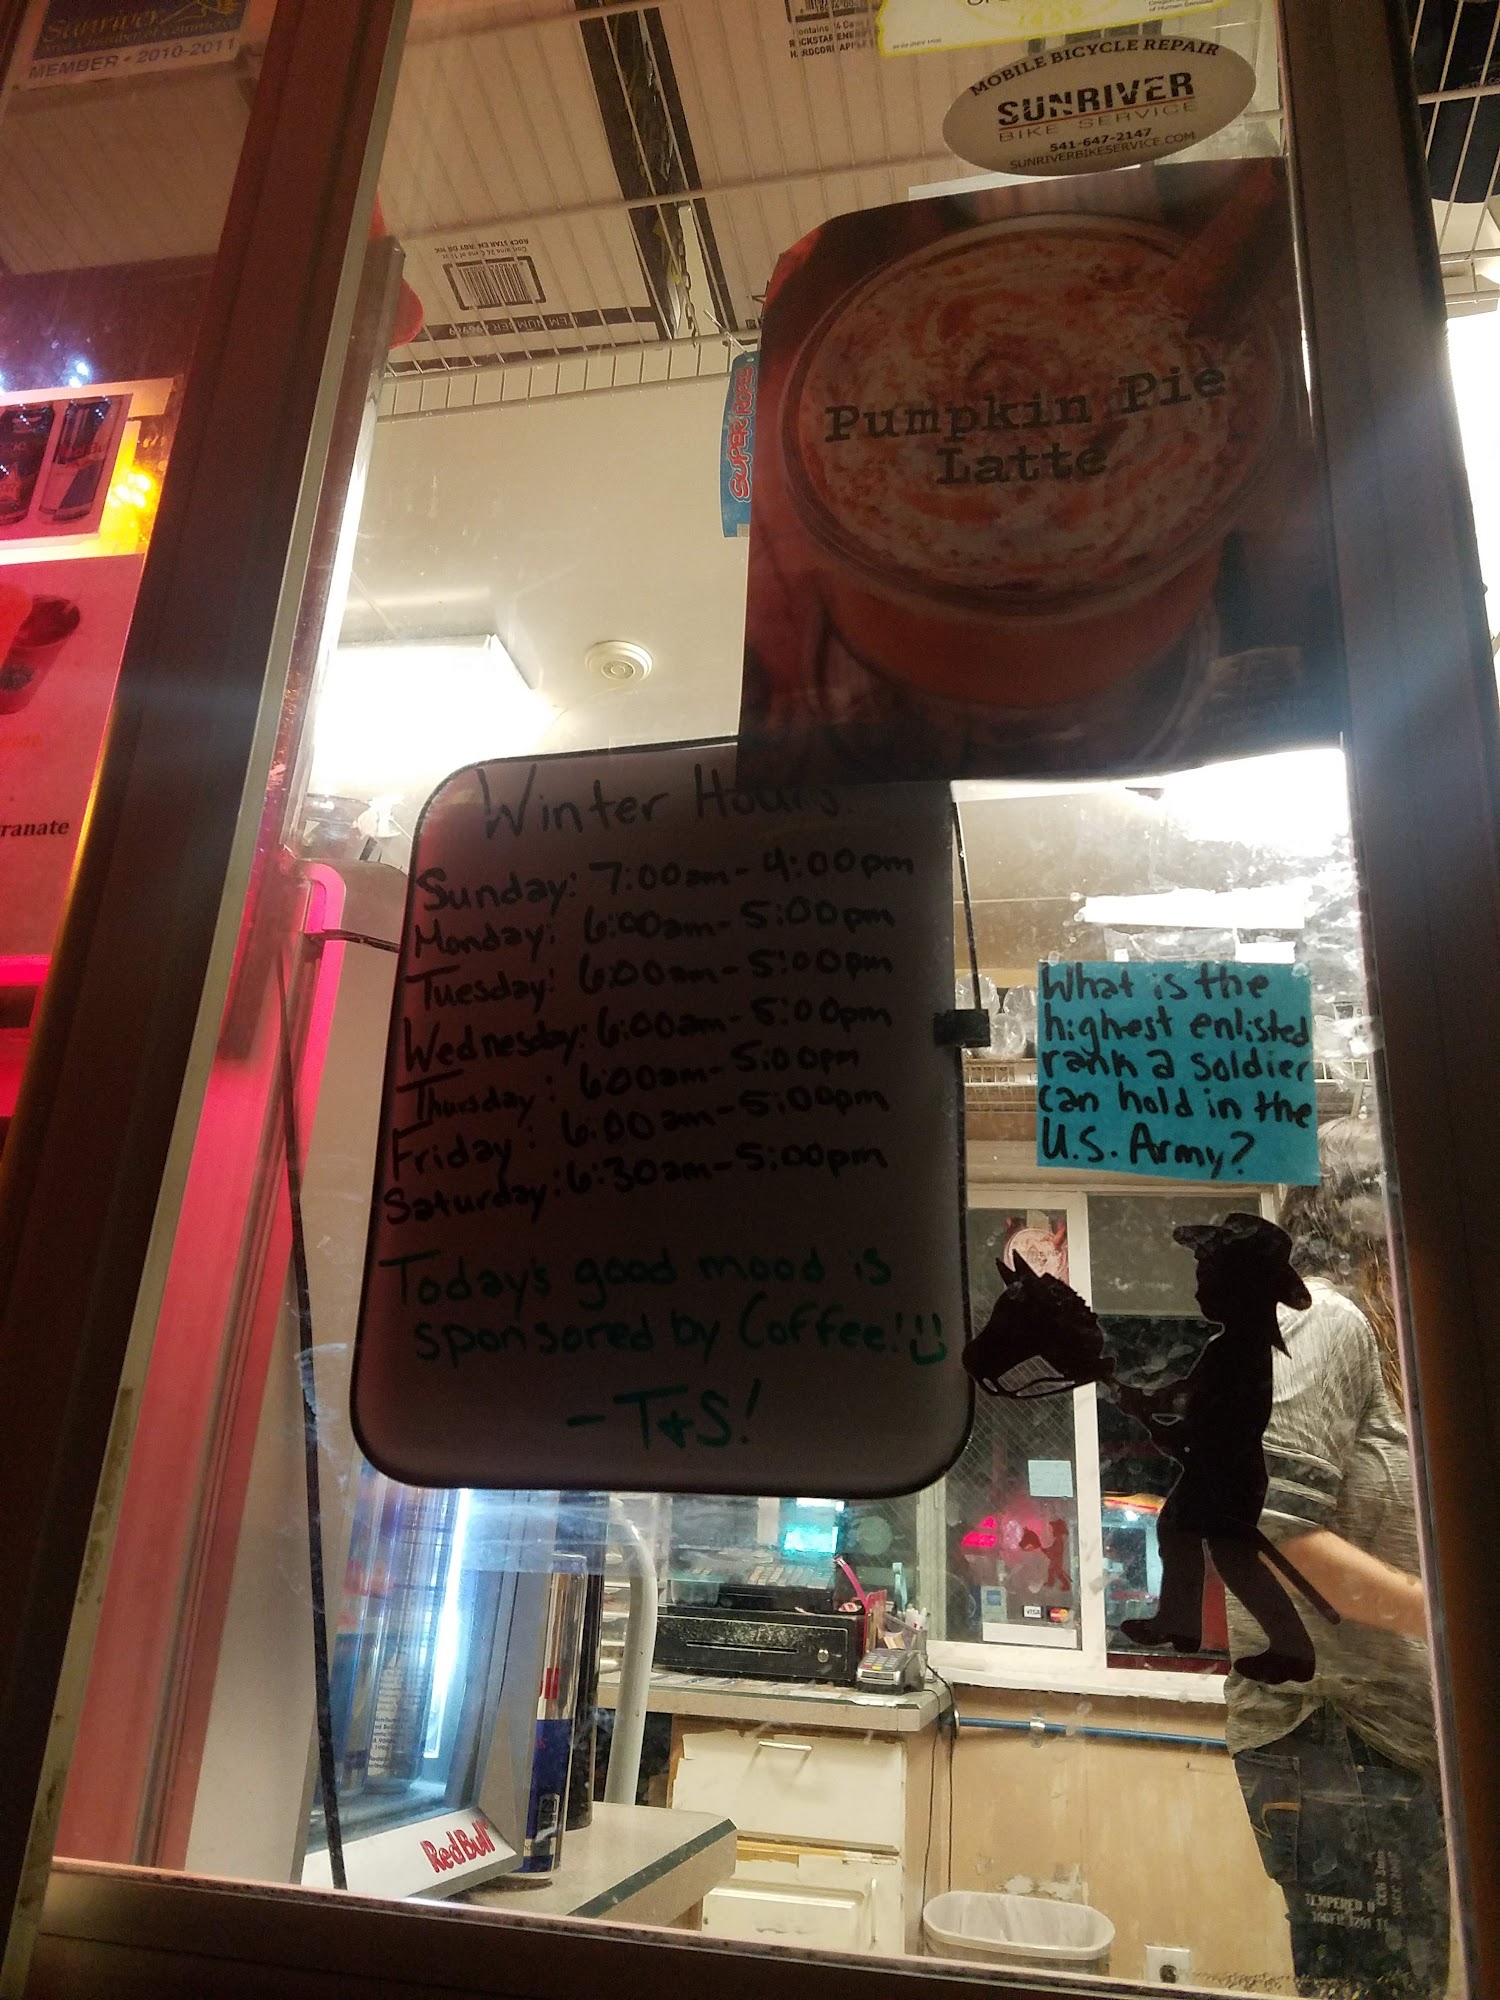 Sunriver
MEMBER • 2010-2011
ROCKSTAR ENE
HARDCORE APPL
MOBILE BICYCLE REPAIR
SUNRIVER
BIKE SERVICE
541-647-2147
SUNRIVERBIKESERVICE.COM
SUPER ROPE
Pumpkin Pie
Latte
ranate
Winter Hours:
Sunday: 7:00am-4:00pm
Monday: 6:00am-5:00pm
Tuesday: 6:00am-5:00pm
Wednesday: 6:00am-5:00pm
Thursday: 6:00am-5:00pm
Friday: 6:00am-5:00pm
Saturday: 6:30am-5:00pm
Today's good mood is
sponsored by Coffee!
-T&S!
What is the
highest enlisted
rank a soldier
can hold in the
U.S. Army?
VISA
MasterCard
RedBull
TEMPERED